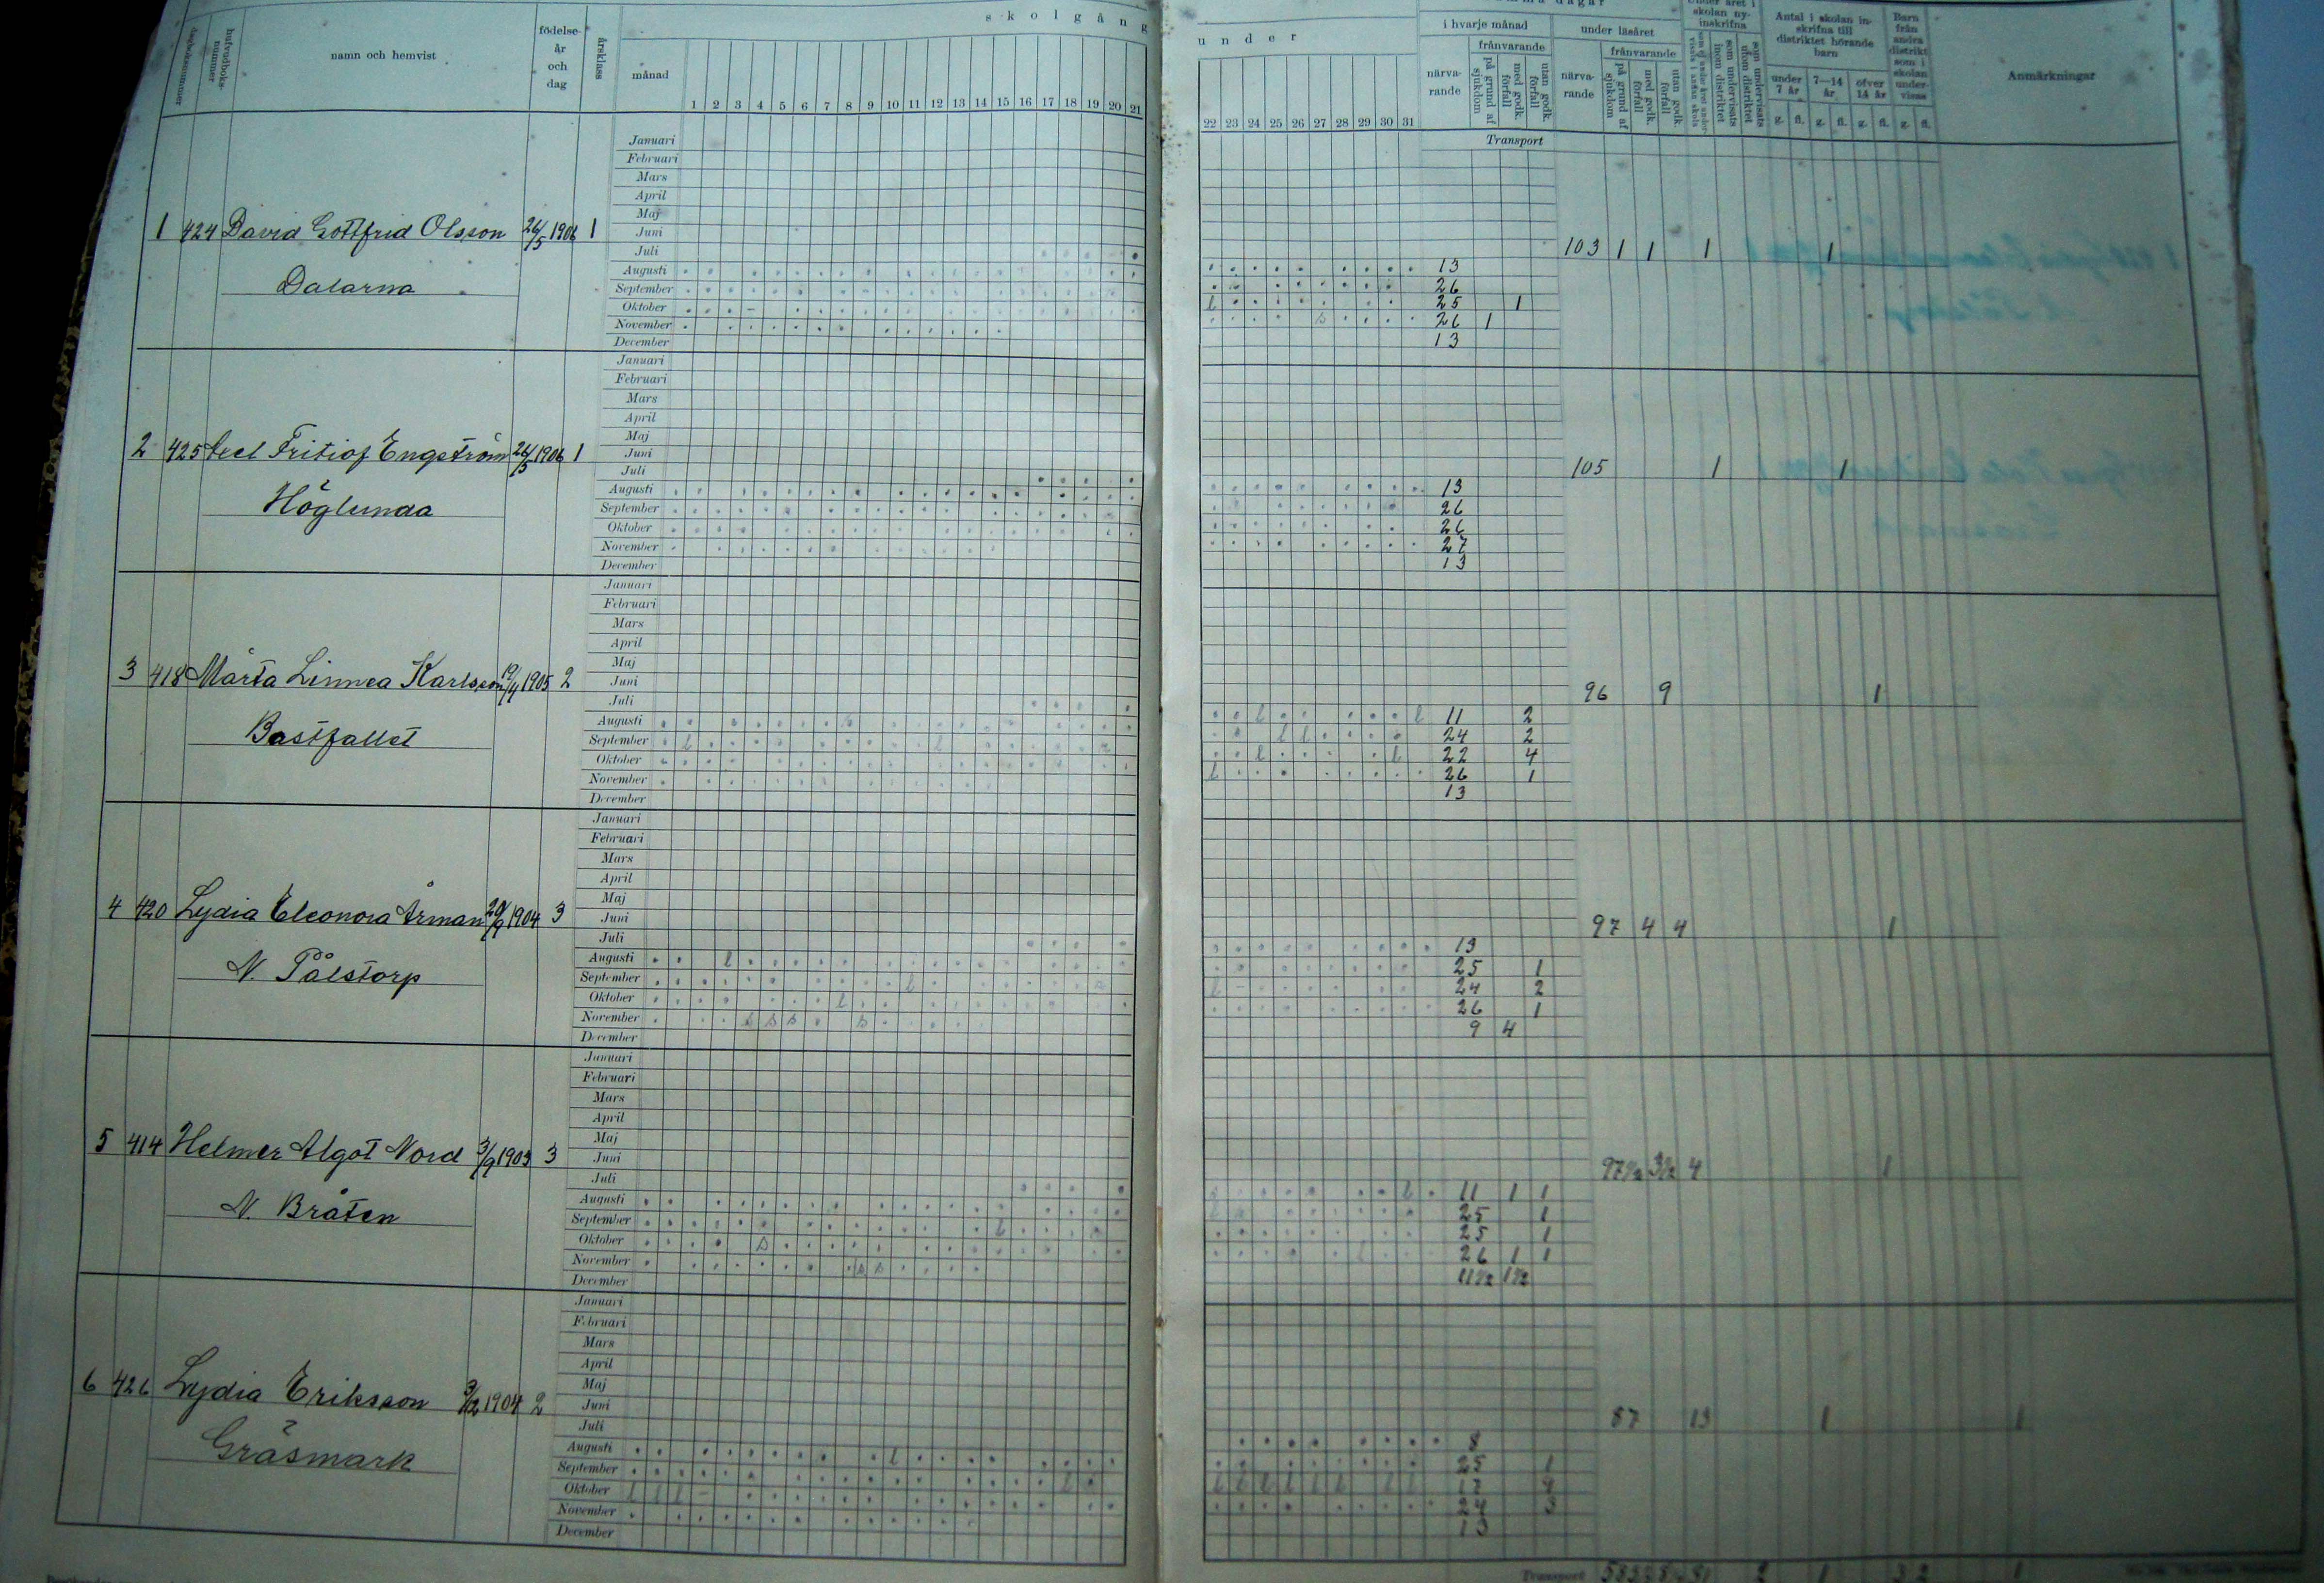 skolgång
under
dagboksnummer
hufvudboks-nummer
namn och hemvist
födelse-
år
och
dag
årsklass
månad
1 2 3 4 5 6 7 8 9 10 11 12 13 14 15 16 17 18 19 20 21
22 23 24 25 26 27 28 29 30 31
i hvarje månad
närva-
rande
frånvarande
på grund af sjukdom
med godk. förfall
utan godk. förfall
under läsåret
närva-
rande
frånvarande
på grund af sjukdom
med godk. förfall
utan godk. förfall
Under året i
skolan ny-
inskrifna
som undervisats inom distriktet
som undervisats utom distriktet
Antal i skolan in-
skrifna till
distriktet hörande
barn
under 7 år
7—14 år
öfver 14 år
Barn
från
andra
distrikt
som i
skolan
under-
visas
g. fl. g. fl. g. fl. g. fl.
Anmärkningar
Transport
1 424 David Gottfrid Olsson 26/5 1906 1
Dalarna
Januari
Februari
Mars
April
Maj
Juni
Juli
Augusti 13
September 26
Oktober 25 1
November 26 1
December 13
103 1 1 1 1
2 425 Axel Fritiof Engström 26/5 1906 1
Höglunda
Januari
Februari
Mars
April
Maj
Juni
Juli
Augusti 13
September 26
Oktober 26
November 27
December 13
105 1 1
3 418 Märta Linnea Karlsson 19/4 1905 2
Bastfallet
Januari
Februari
Mars
April
Maj
Juni
Juli
Augusti 11 2
September 24 2
Oktober 22 4
November 26 1
December 13
96 9 1
4 420 Lydia Eleonora Årman 1904 3
N. Pålstorp
Januari
Februari
Mars
April
Maj
Juni
Juli
Augusti 13
September 25 1
Oktober 24 2
November 26 1
December 9 4
97 4 4 1
5 414 Helmer Algot Nord 3/9 1903 3
N. Bråten
Januari
Februari
Mars
April
Maj
Juni
Juli
Augusti 11 1 1
September 25 1
Oktober 25 1
November 26 1 1
December 11 1/2 1 1/2
97 1/2 3 1/2 4 1
6 426 Lydia Eriksson 3/2 1904 2
Gräsmark
Januari
Februari
Mars
April
Maj
Juni
Juli
Augusti 8
September 25 1
Oktober 17 9
November 24 3
December 13
87 13 1 1
Transport